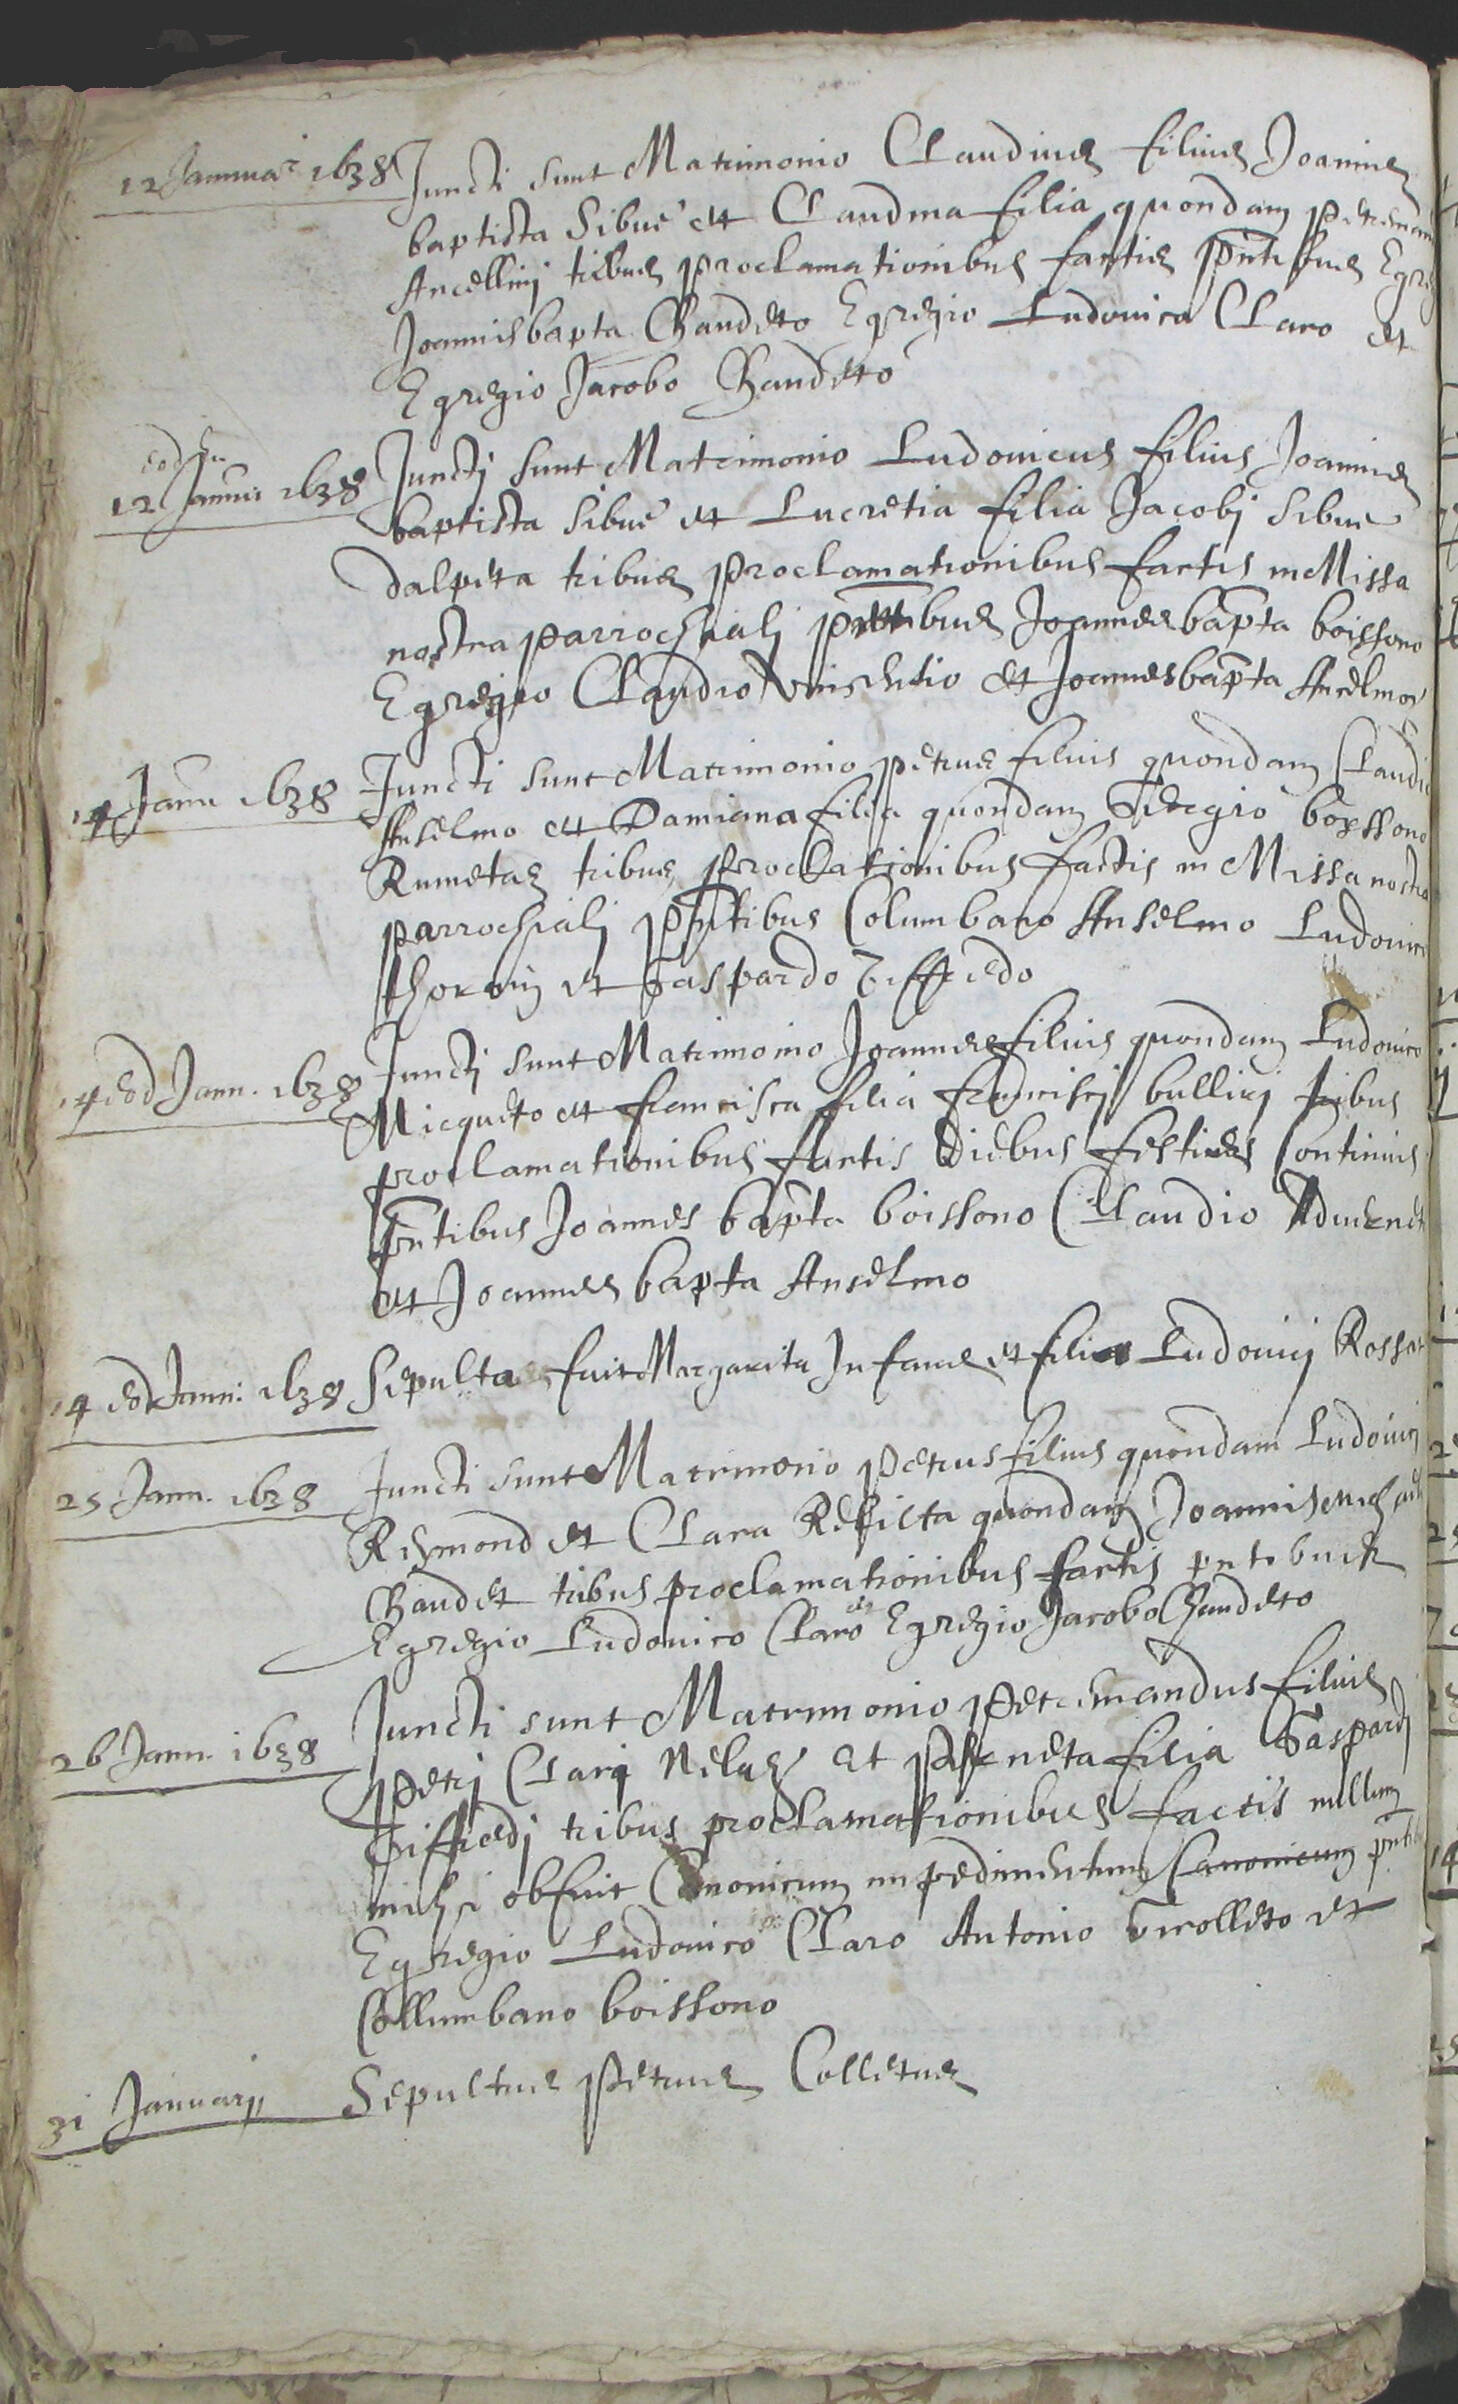 12 Januar 1638 Juncti sunt Matrimonio Claudius filius Joannis
baptista Sibue et Claudina filia quondam petremandi
Ancellini tribus proclamationibus factis pntibus Egregio
Joannisbapta Chaudeto Egregio Ludovico Claro et
Egregio Jacobo Chaudeto
eod
12 Januri 1638 Junctj sunt Matrimonio Ludovicus filius Joannis
baptista Sibue et Lucretia filia Jacobj Sibue
dalpeta tribus proclamationibus factis in Missa
nostra parrochialj pntibus Joannes bapta boissono
Egregio Claudio Vinsentio et Joannesbapta Anselmo
14 Janu 1638 Juncti sunt Matrimonio petrus filius quondam Claudii
Anselmo et Damiana filia quondam boyssono
Rumetaz tribus proclationibus factis in Missa nostra
parrochialj pntibus Columbano Anselmo Ludovico
et Gaspardo Tiffredo
14 eod Jann. 1638 Junctj sunt Matrimonio Joannes filius quondam Ludovico
Micqueto et francisca filia francisj bullicj tribus
proclamationibus factis diebus festives Continuis
pntibus Joannes bapta boissono Claudio
et Joannes bapta Anselmo
14 eod Jann: 1638 Sepulta fuit Margarita Infans et filia Ludovicj Rosset
25 Jann. 1638 Juncti sunt Matrimonio petrus filius quondam Ludovicj
Reymond et Clara Relicta quondam Joannis
Chaudet tribus proclamationibus factis pntibus
Egregio Ludovico Claro Egregio Jacobo Chaudeto
26 Jann. 1638 Juncti sunt Matrimonio petremandus filius
petrj Clarj et filia Gaspardj
Tiffredj tribus proclamationibus factis nullum
michi obfuit Canonicum impedimentum Canonicum pntibus
Egregio Ludovico Claro Antonio Vuolleto et
Collumbano boissono
31 Januarij Sepultus petrus Colletus